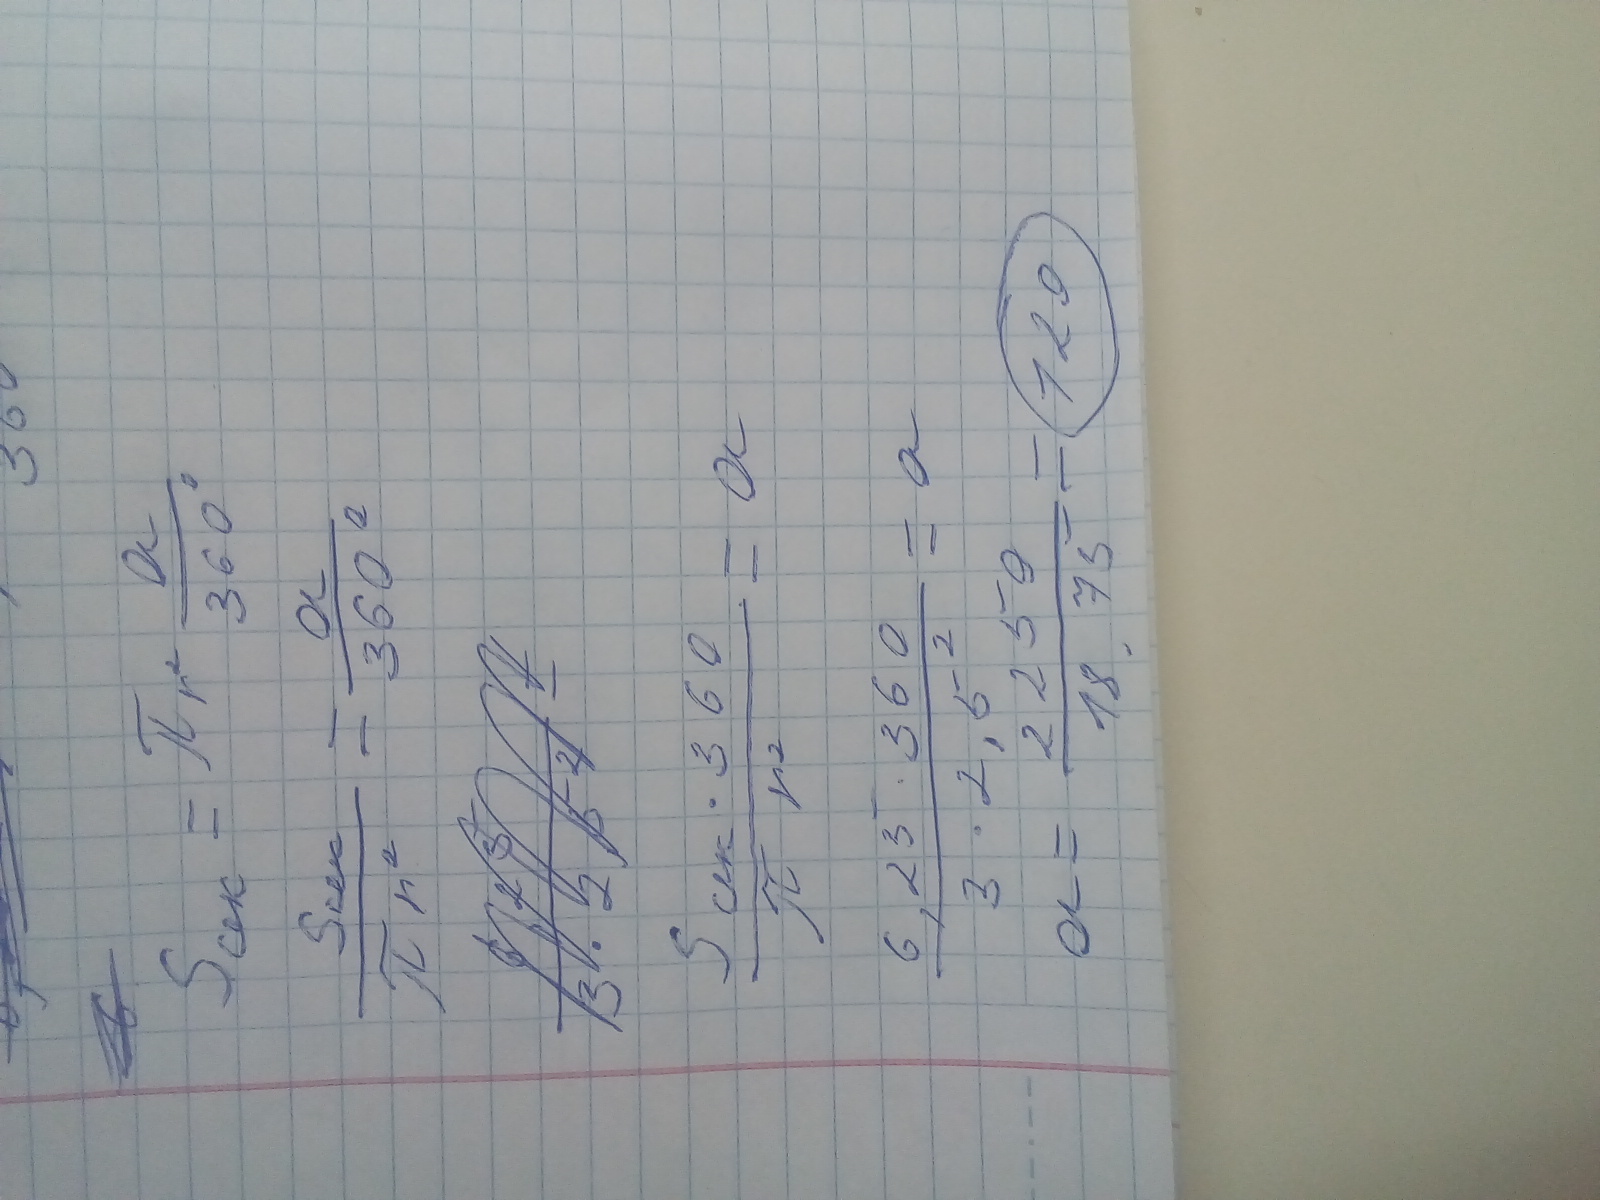 360
Sсек = πr² α/360°
Sсек/πr² = α/360°
Sсек · 360/πr² = α
6,25 · 360/3 · 2,5² = α
α = 2250/18,75 = 120